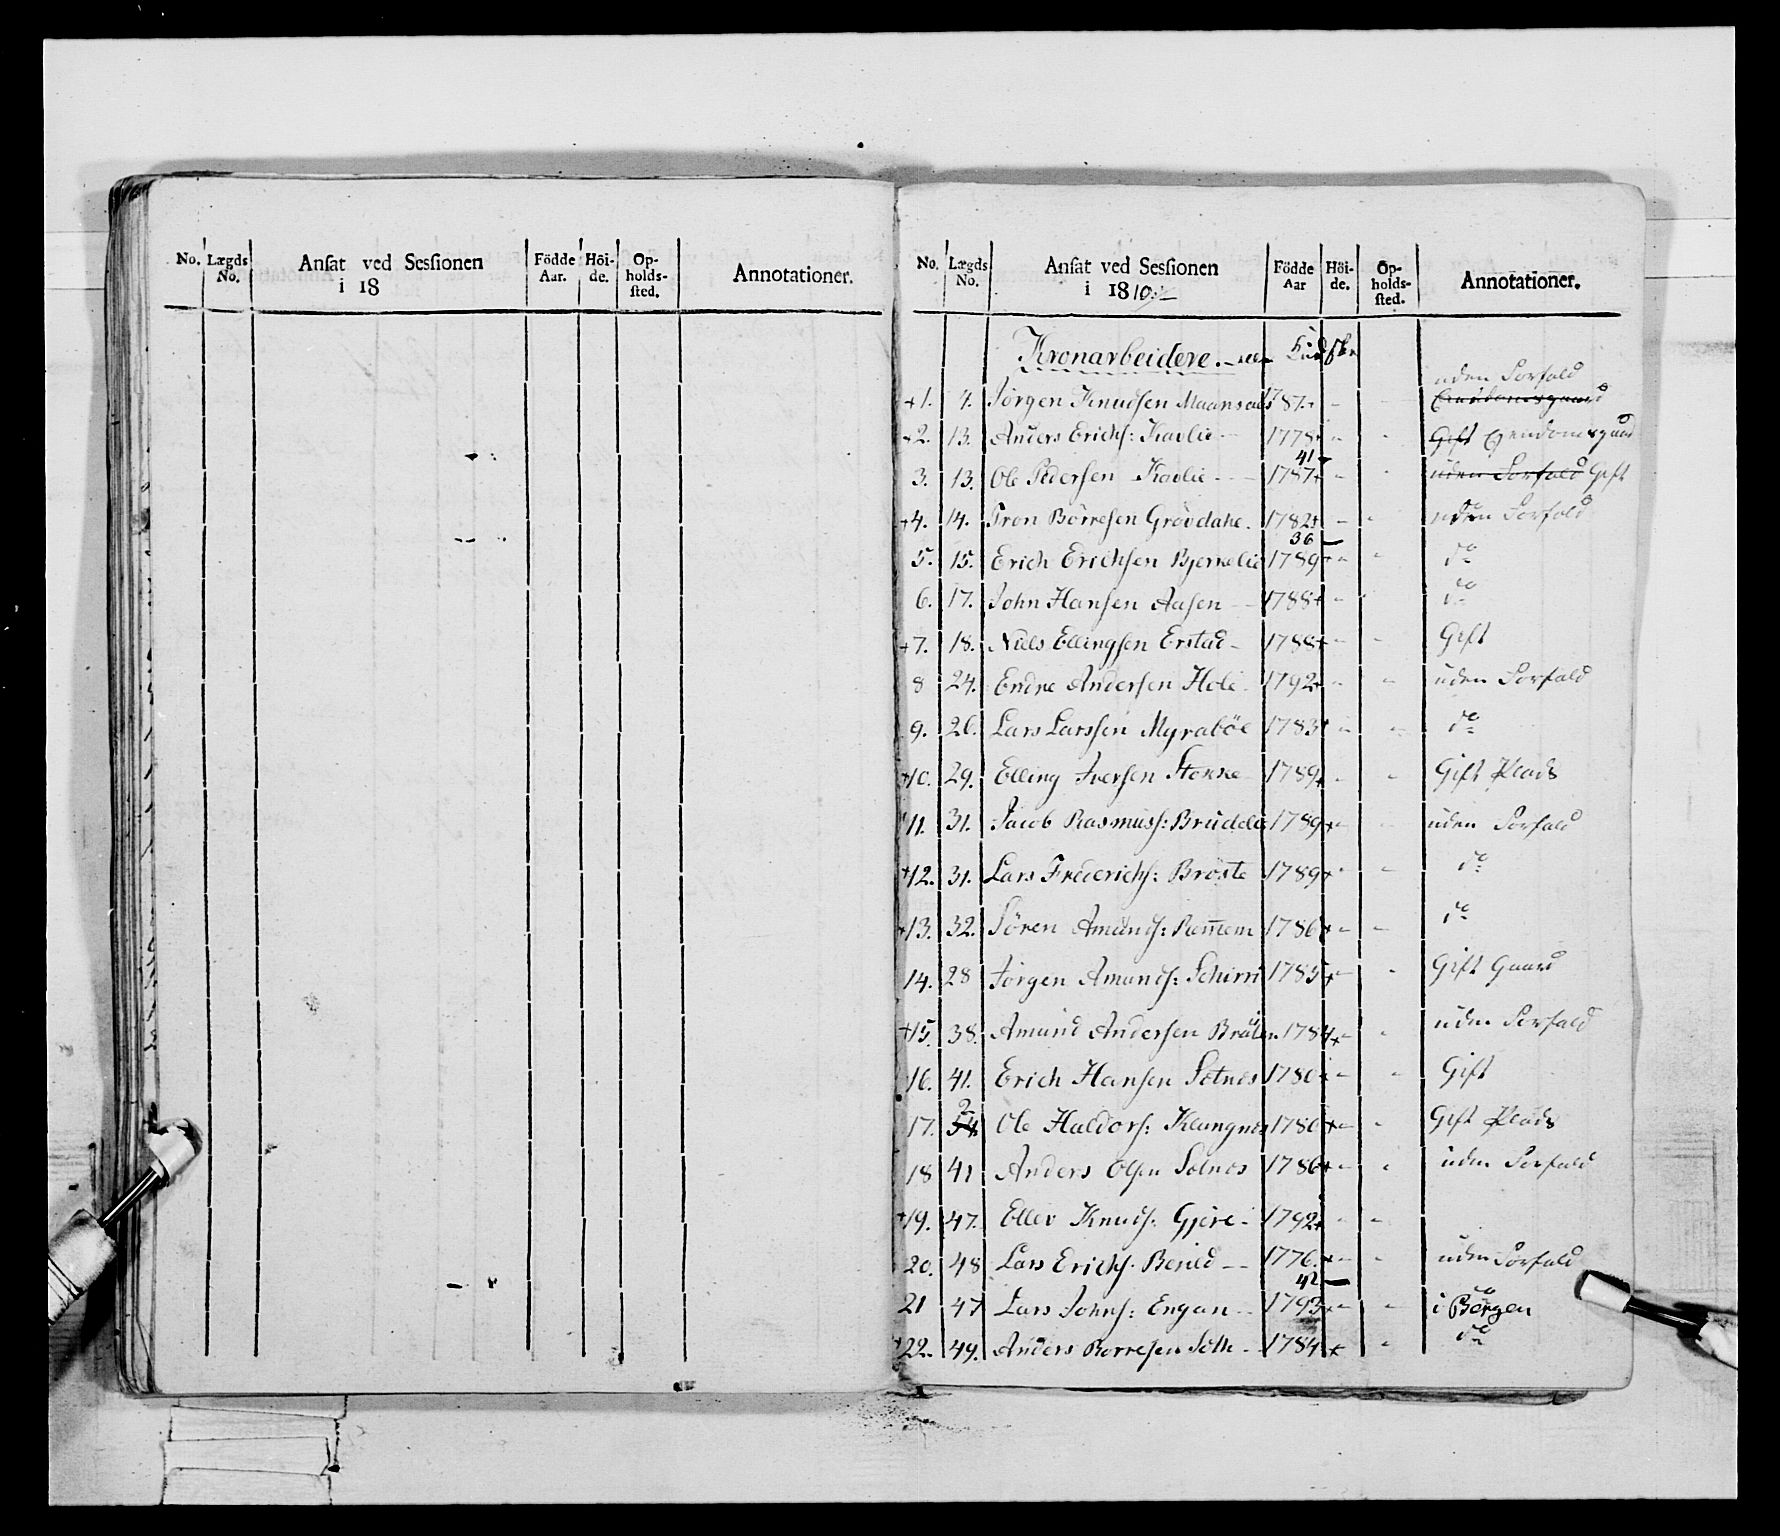 No. Lægds No. Ansat ved Sessionen i 18 Födde Aar. Höi-de. Op-holds-sted. Annotationer.
No. Lægds No. Ansat ved Sessionen i 1810 Födde Aar Höi-de. Op-holds-sted. Annotationer.
Kronarbeidere.
uden Forfald
+1. 4. Jörgen Knudsen 1787+ -
+2. 13. Anders Erichs: Kavlie 1778+ - - Gift Ejendomsgaard
41
3. 13. Ole Pedersen Kavlie 1787+ - - uden Forfald Gift
+4. 14. Tron Börresen Grövdahe. 1782+ - - uden Forfald
36
5. 15. Erich Erichsen Bjermelie 1789+ - - do
6. 17. John Hansen Aasen 1788+ - do
+7. 18. Niels Ellingsen Erstad 1788+ - - Gift
8 24. Endre Andersen Hole 1792+ - - uden Forfald
9. 26. Lars Larssen Myraböe 1783+ - - do
+10. 29. Elling Iversen Stokke 1789+ - - Gift Plads
11. 31. Jacob Rasmuss: 1789+ - - uden Forfald
+12. 31. Lars Frederichs: Bröste 1789+ - - do
+13. 32. Sören Amunds: Rem̅em 1786+ - - do
14. 28 Jörgen Amunds: Schirri 1785+ - - Gift Gaard
+15. 38. Amund Andersen 1784+ - - uden Forfald
16. 41. Erich Hansen Solnes 1786+ - - Gift
2
17. 54. Ole Haldors: Klungnes 1786+ - - Gift Plads
18 41 Anders Olsen Solnes 1786+ - - uden Forfald
+19. 47. Ellev Knuds: Gjere 1792+ - -
20. 48 Lars Erichs. Berild 1776.+ - - uden Forfald
42 do
21 47 Lars Johns: Engan 1793+ - - i Bergen
22. 49. Anders Börresen Sette 1784+ - do